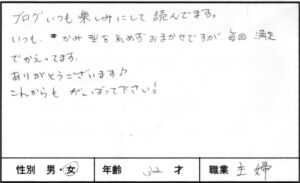 ブログいつも楽しみにして読んでます。
いつも、かみ型を決めずおまかせですが、毎回満足
でかえってます。
ありがとうございます♪
これからもがんばって下さい!
性別 男・女 年齢 32 才 職業 主婦